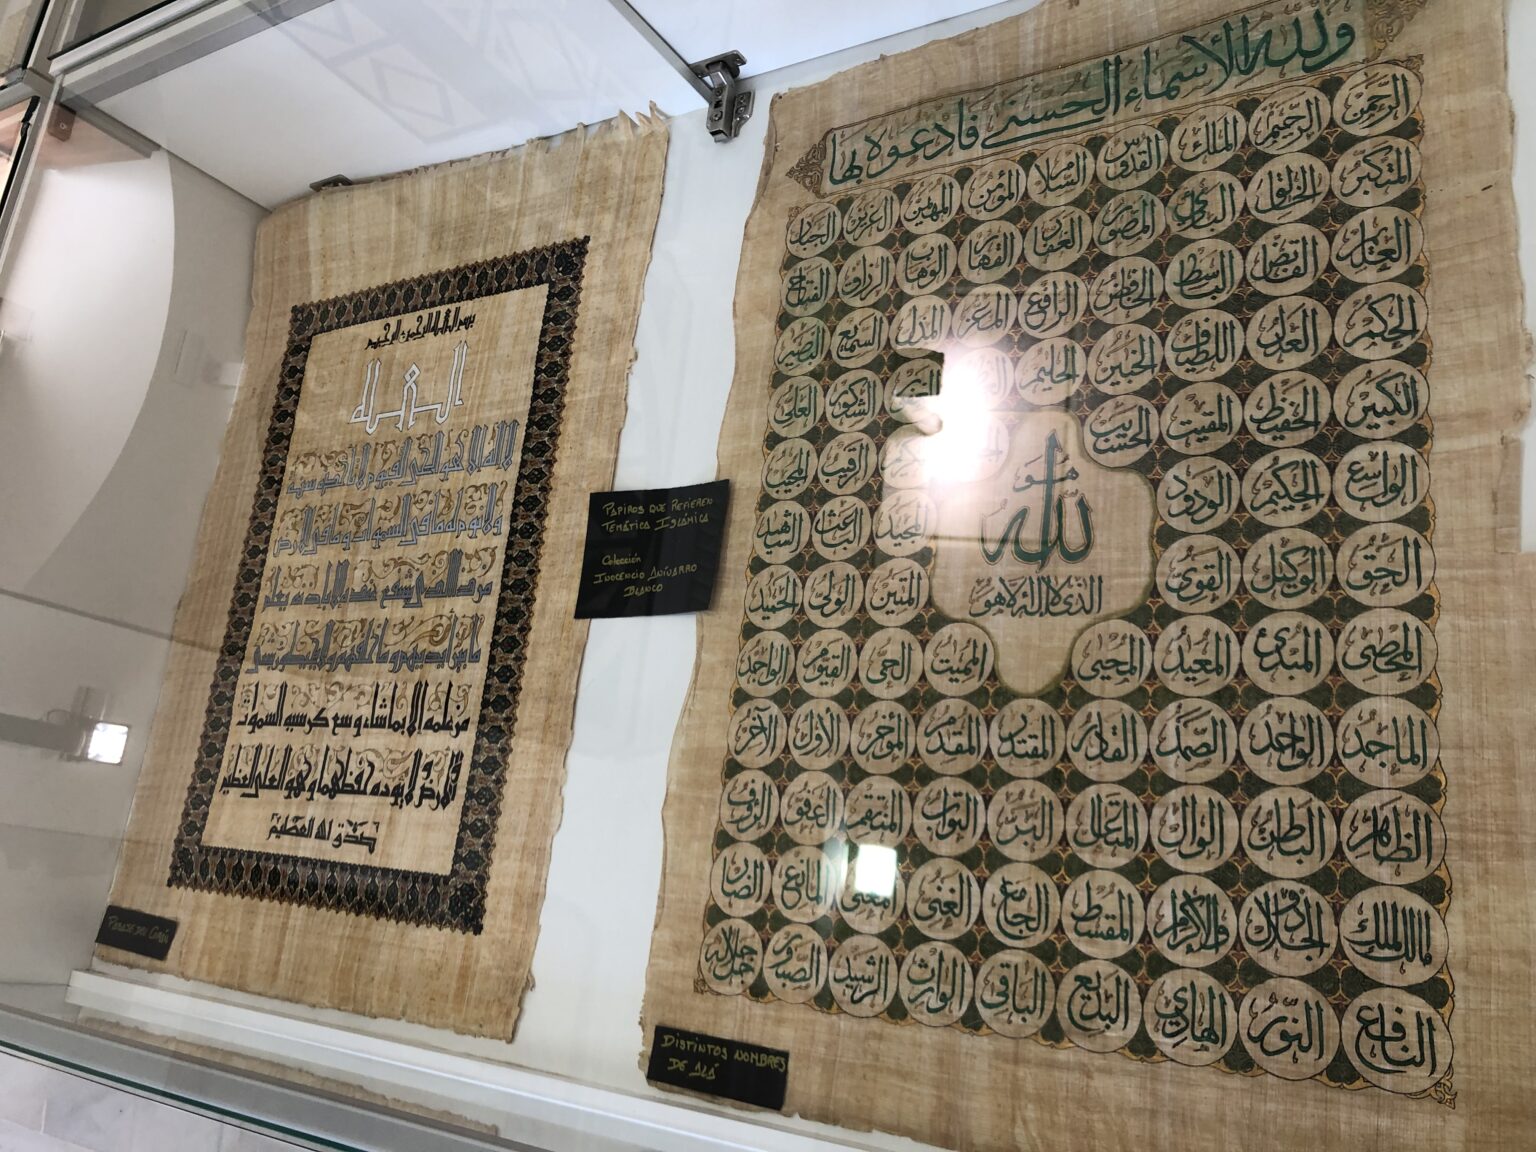 بسم الله الرحمن الرحيم
الله
لا اله الا هو الحي القيوم لا تأخذه سنة
ولا نوم له ما في السموات وما في الارض
من ذا الذي يشفع عنده الا باذنه يعلم
ما بين أيديهم وما خلفهم ولا يحيطون بشي
من علمه الا بما شاء وسع كرسيه السموات
والارض ولا يوده حفظهما وهو العلي العظيم
صدق الله العظيم
PASAJE DEL CORÁN
PAPIROS QUE REFIEREN
TEMÁTICA ISLÁMICA
Colección
INOCENCIO ANIVARRO
BLANCO
ولله الاسماء الحسنى فادعوه بها
الرحمن الرحيم الملك القدوس السلام المؤمن المهيمن العزيز الجبار
المتكبر الخالق البارئ المصور الغفار القهار الوهاب الرزاق الفتاح
العليم القابض الباسط الخافض الرافع المعز المذل السميع البصير
الحكم العدل اللطيف الخبير الحليم الشكور العلي
الكبير الحفيظ المقيت الحسيب الرقيب المجيب
الواسع الحكيم الودود المجيد الباعث الشهيد
الحق الوكيل القوي المتين الولي الحميد
المحصي المبدئ المعيد المحيي المميت الحي القيوم الواجد
الماجد الواحد الصمد القادر المقتدر المقدم المؤخر الاول الآخر
الظاهر الباطن الوالي المتعال البر التواب المنتقم العفو الرؤوف
مالك الملك ذو الجلال والاكرام المقسط الجامع الغني المغني المانع الضار
النافع النور الهادي البديع الباقي الوارث الرشيد الصبور جل جلاله
هو
الله
الذي لا اله الا هو
DISTINTOS NOMBRES
DE ALÁ